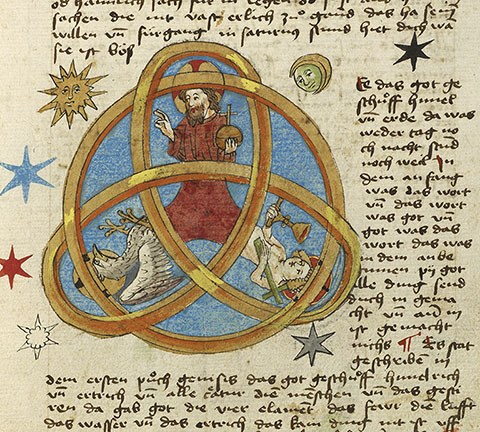 sachen die mit vast erlich zu gand das ha
willen vn̄ fürgang in saturnus stund hiet doch wa
sie ist böß
Es das got ge
schůff himel
vn̄ erde da was
weder tag no
ch nacht stūd
noch weil In
dem anfang
was das wort
vn̄ das wort
was got vn̄
got was das
wort das was
in dem anbe
ginnen pÿ got
alle ding send
durch in gema
cht vn̄ an in
ist gemacht
nichs ¶ Es stat
geschriben in
dem ersten půch genisis das got geschůff himelrich
vn̄ ertrich vn̄ alle die menschen vn̄ das gesti
ren da gab got die vier elamet das fewr die lufft
das wasser vn̄ das ertrich das kain ding mit ist